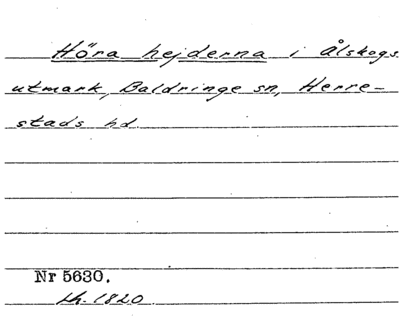 Höra hejderna i Ålskogs
utmark, Baldringe sn, Herre-
stads hd
Nr 5630.
Lh. 1820